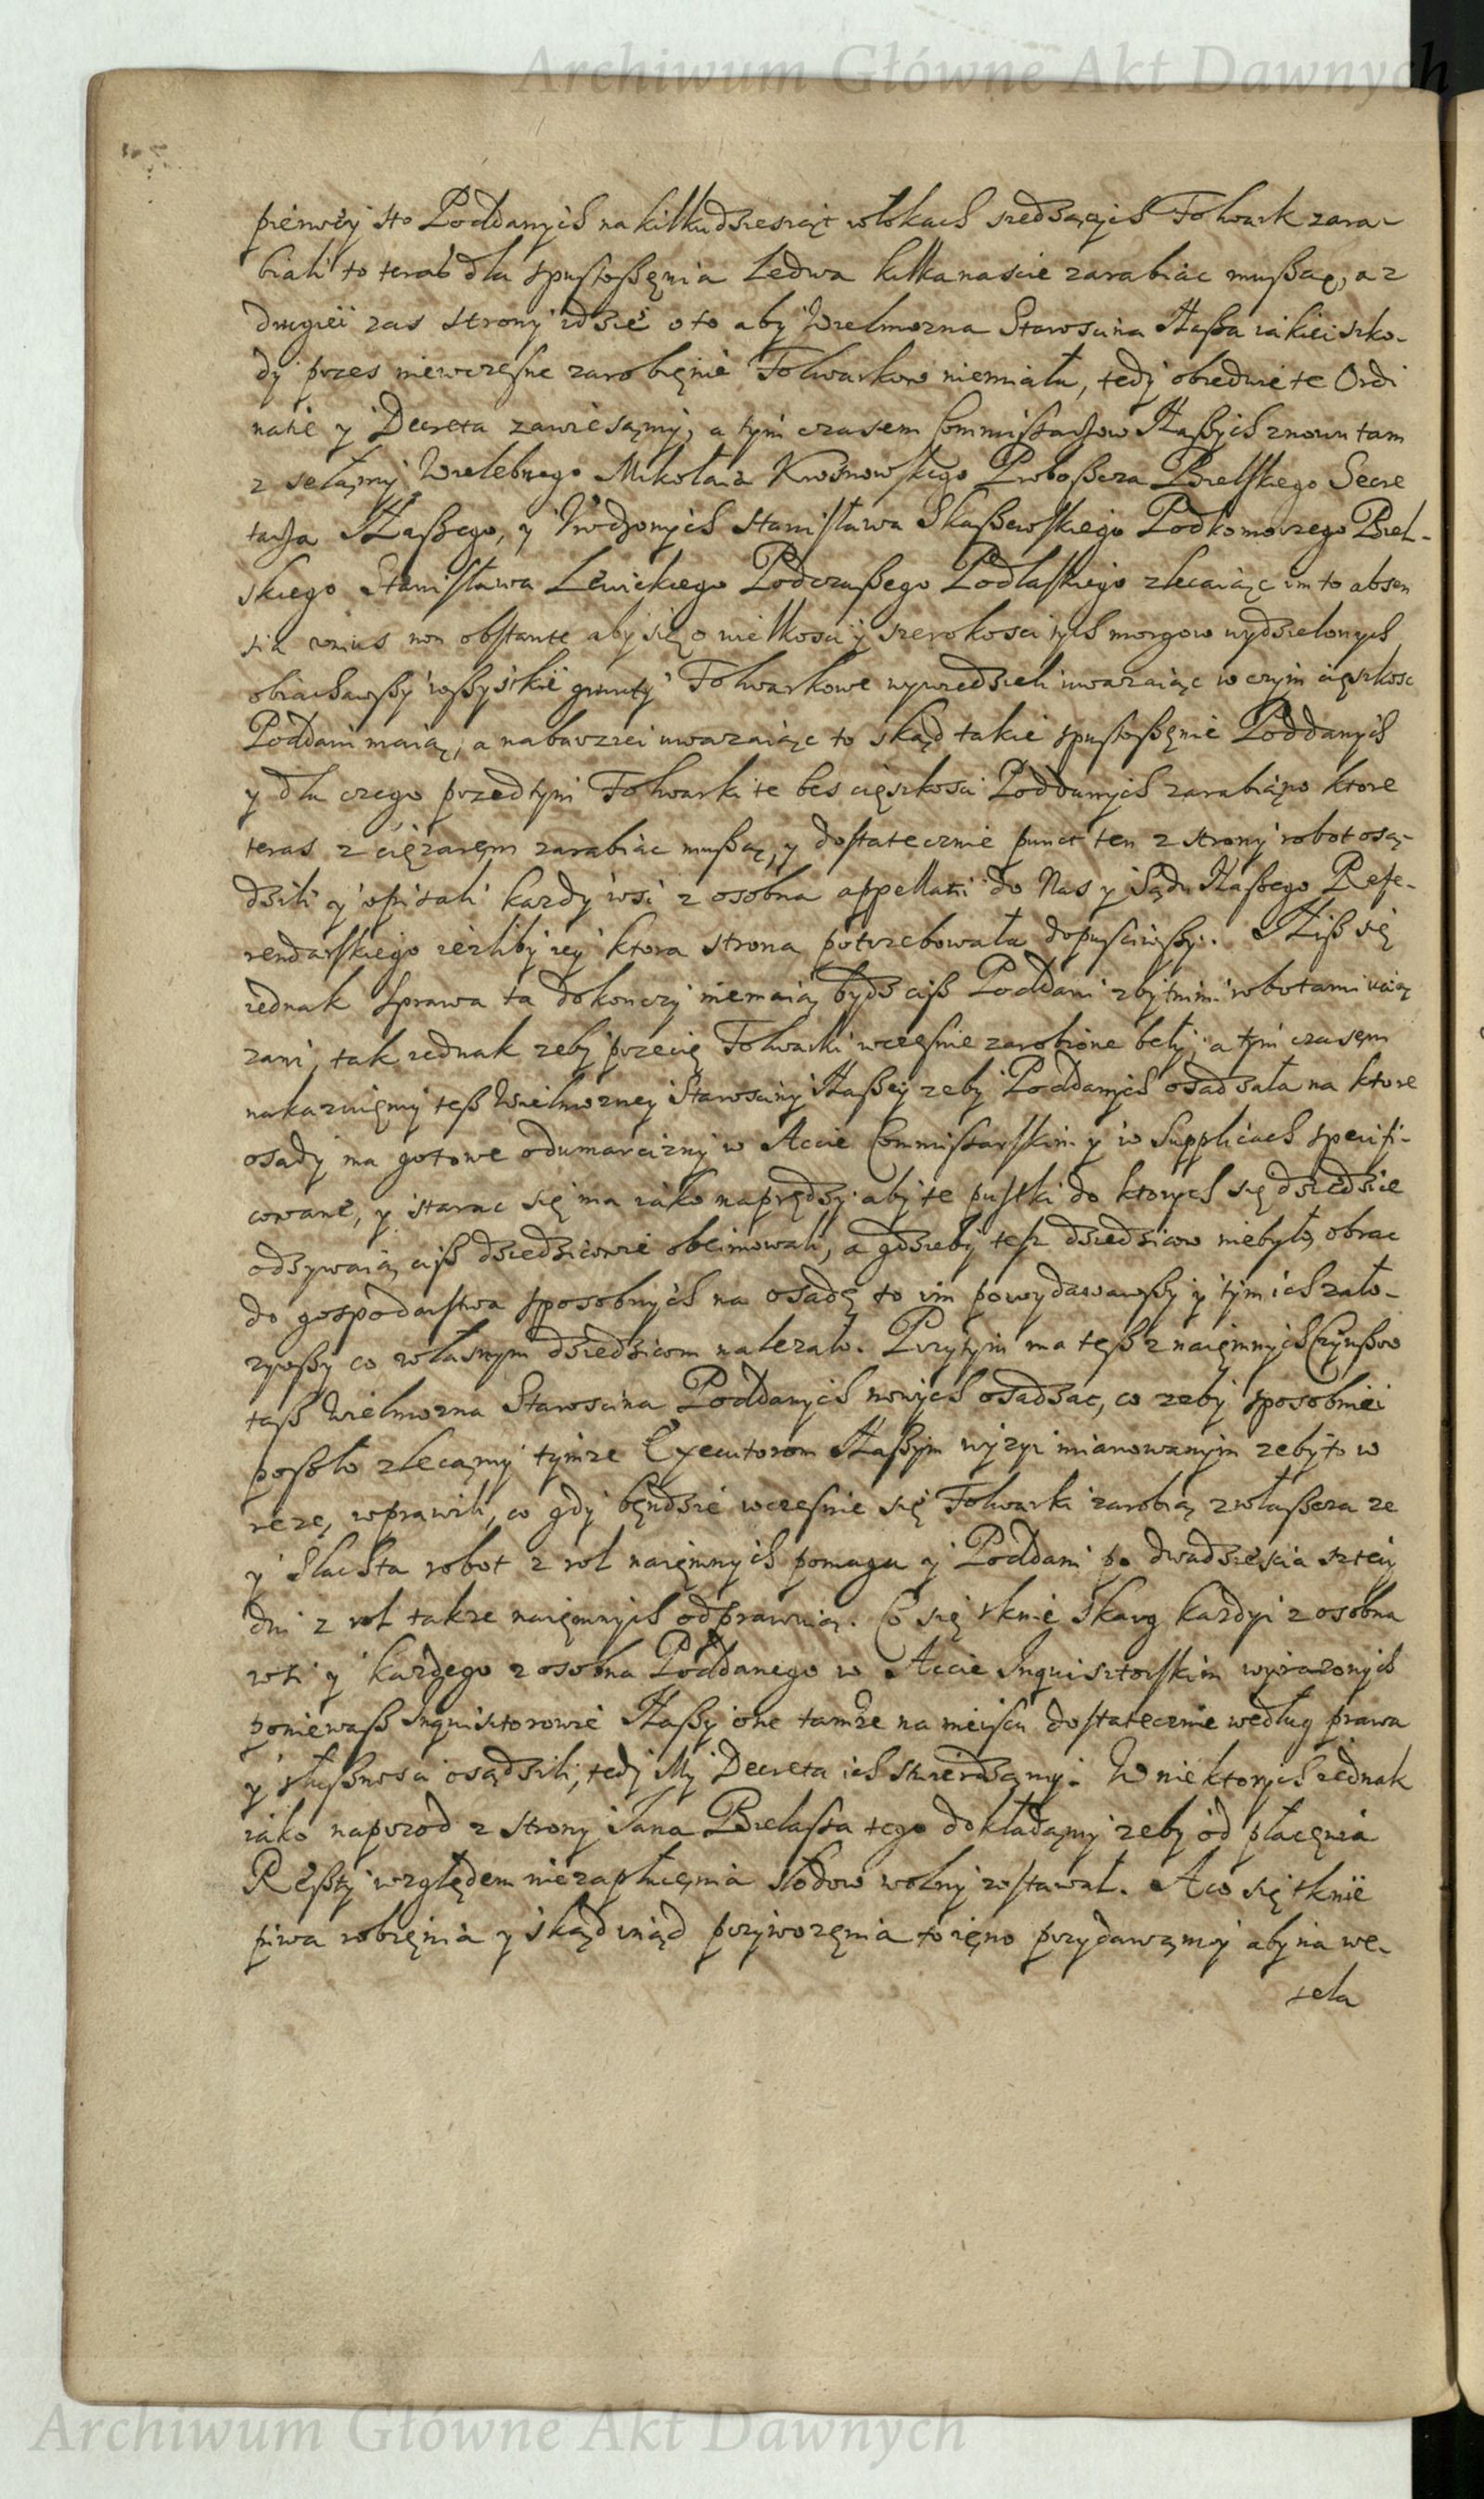 Archiwum Główne Akt Dawnych
pierwey sto Poddanych na kilkudziesiąt włokach siedzących Folwark zara-
biali to teras dla spustoszęnia ledwa kilkanascie zarabiac mußaę, a z
drugiei zas strony idzie o to aby Wielmozna Starosćina Naßa iakiei szko-
dy przes niewczesne zarobięnie Folwarkow niemiała, tedy obiedwie te Ordi
natie y Decreta zawiesąmy, a tym czasem Commissarzow Naßych znowu tam
z sełamy Wielebnego Mikołaia Krosnowskiego Proboßcza Bielskiego Secre
tarza Naßego, y Urodzonych Stanisława Skaßewskiego Podkomorzego Biel-
skiego Stanisława Lewickiego Podczaßego Podlaskiego zlecaiąc im to absen
tia unius non obstante aby się o wielkosci y szerokosci tych morgow wydzielonych
obiachawßy wßyskie grunty Folwarkowe wywiedzieli uwazaiąc w czym cięszkosc
Poddani maią, a nabarziei uwazaiąc to skąd takie spustoßęnie Poddanych
y dla czego przedtym Folwarki te bes cięszkosci Poddanych zarabiąno ktore
teras z cięzaręm zarabiac mußaę, y dostatecznie punct ten z strony robot osą-
dzili y opisali kazdy wsi z osobna appellatii do Nas y Sądu Naßego Refe-
rendarskiego iezliby iey ktora strona potrzebowała dopusciwßy. Niß się
iednak sprawa ta dokonczy niemaią bydz ciß Poddani zbytnimi robotami ucią
zani, tak iednak zeby przecię Folwarki wczesnie zarobione beły, a tym czasęm
nakazuięmy teß Wielmozney Starosciny Naßey zeby Poddanych osadzała na ktore
osady ma gotowe odumarcizny w Accie Commissarskim y w Supplicach specifi-
cowane, y starac się ma iako napręдzy aby te pustki do ktorych się dziedzice
odzywaią ciß dziedzicowie obeimowali, a gdzieby tesz dziedzicow niebyło, obrac
do gospodarstwa sposobnych na osadę to im powydawawßy y tym ich zało-
zywßy co własnym dziedzicom nalezało. Przytym ma teß z naięmnych Czynßow
taß Wielmozna Starosćina Poddanych nowych osadzac, co zeby sposobniei
posßło zlecąmy tymze Executorom Naßym wyzyi mianowanym zeby to w
rezę wprawili, co gdy będzie wczesnie się Folwarki zarobią zwłaßcza ze
y Slachta robot z rol naięmnych pomaga y Poddani po dwadziescia sztery
dni z rol takze naięmnych odprawuią. Co się tknie skarg kazdyi z osobna
wsi y kazdego z osobna Poddanego w Accie Inquisitorskim wyrazonych
poniewaß Inquisitorowie Naßy one tamze na mieiscu dostatecznie według prawa
y słußnosci osądzili, tedy My Decreta ich stwierdzamy. W niektorych iednak
iako naprzod z strony Iana Bielasta tego dokładąmy zeby od płacęnia
Reßty względem niezapłacęnia słodow wolny zostawał. A co się tknie
piwa robięnia y skądinąd przywozęnia to ięno przydawąmy aby na we-
sela
Archiwum Główne Akt Dawnych